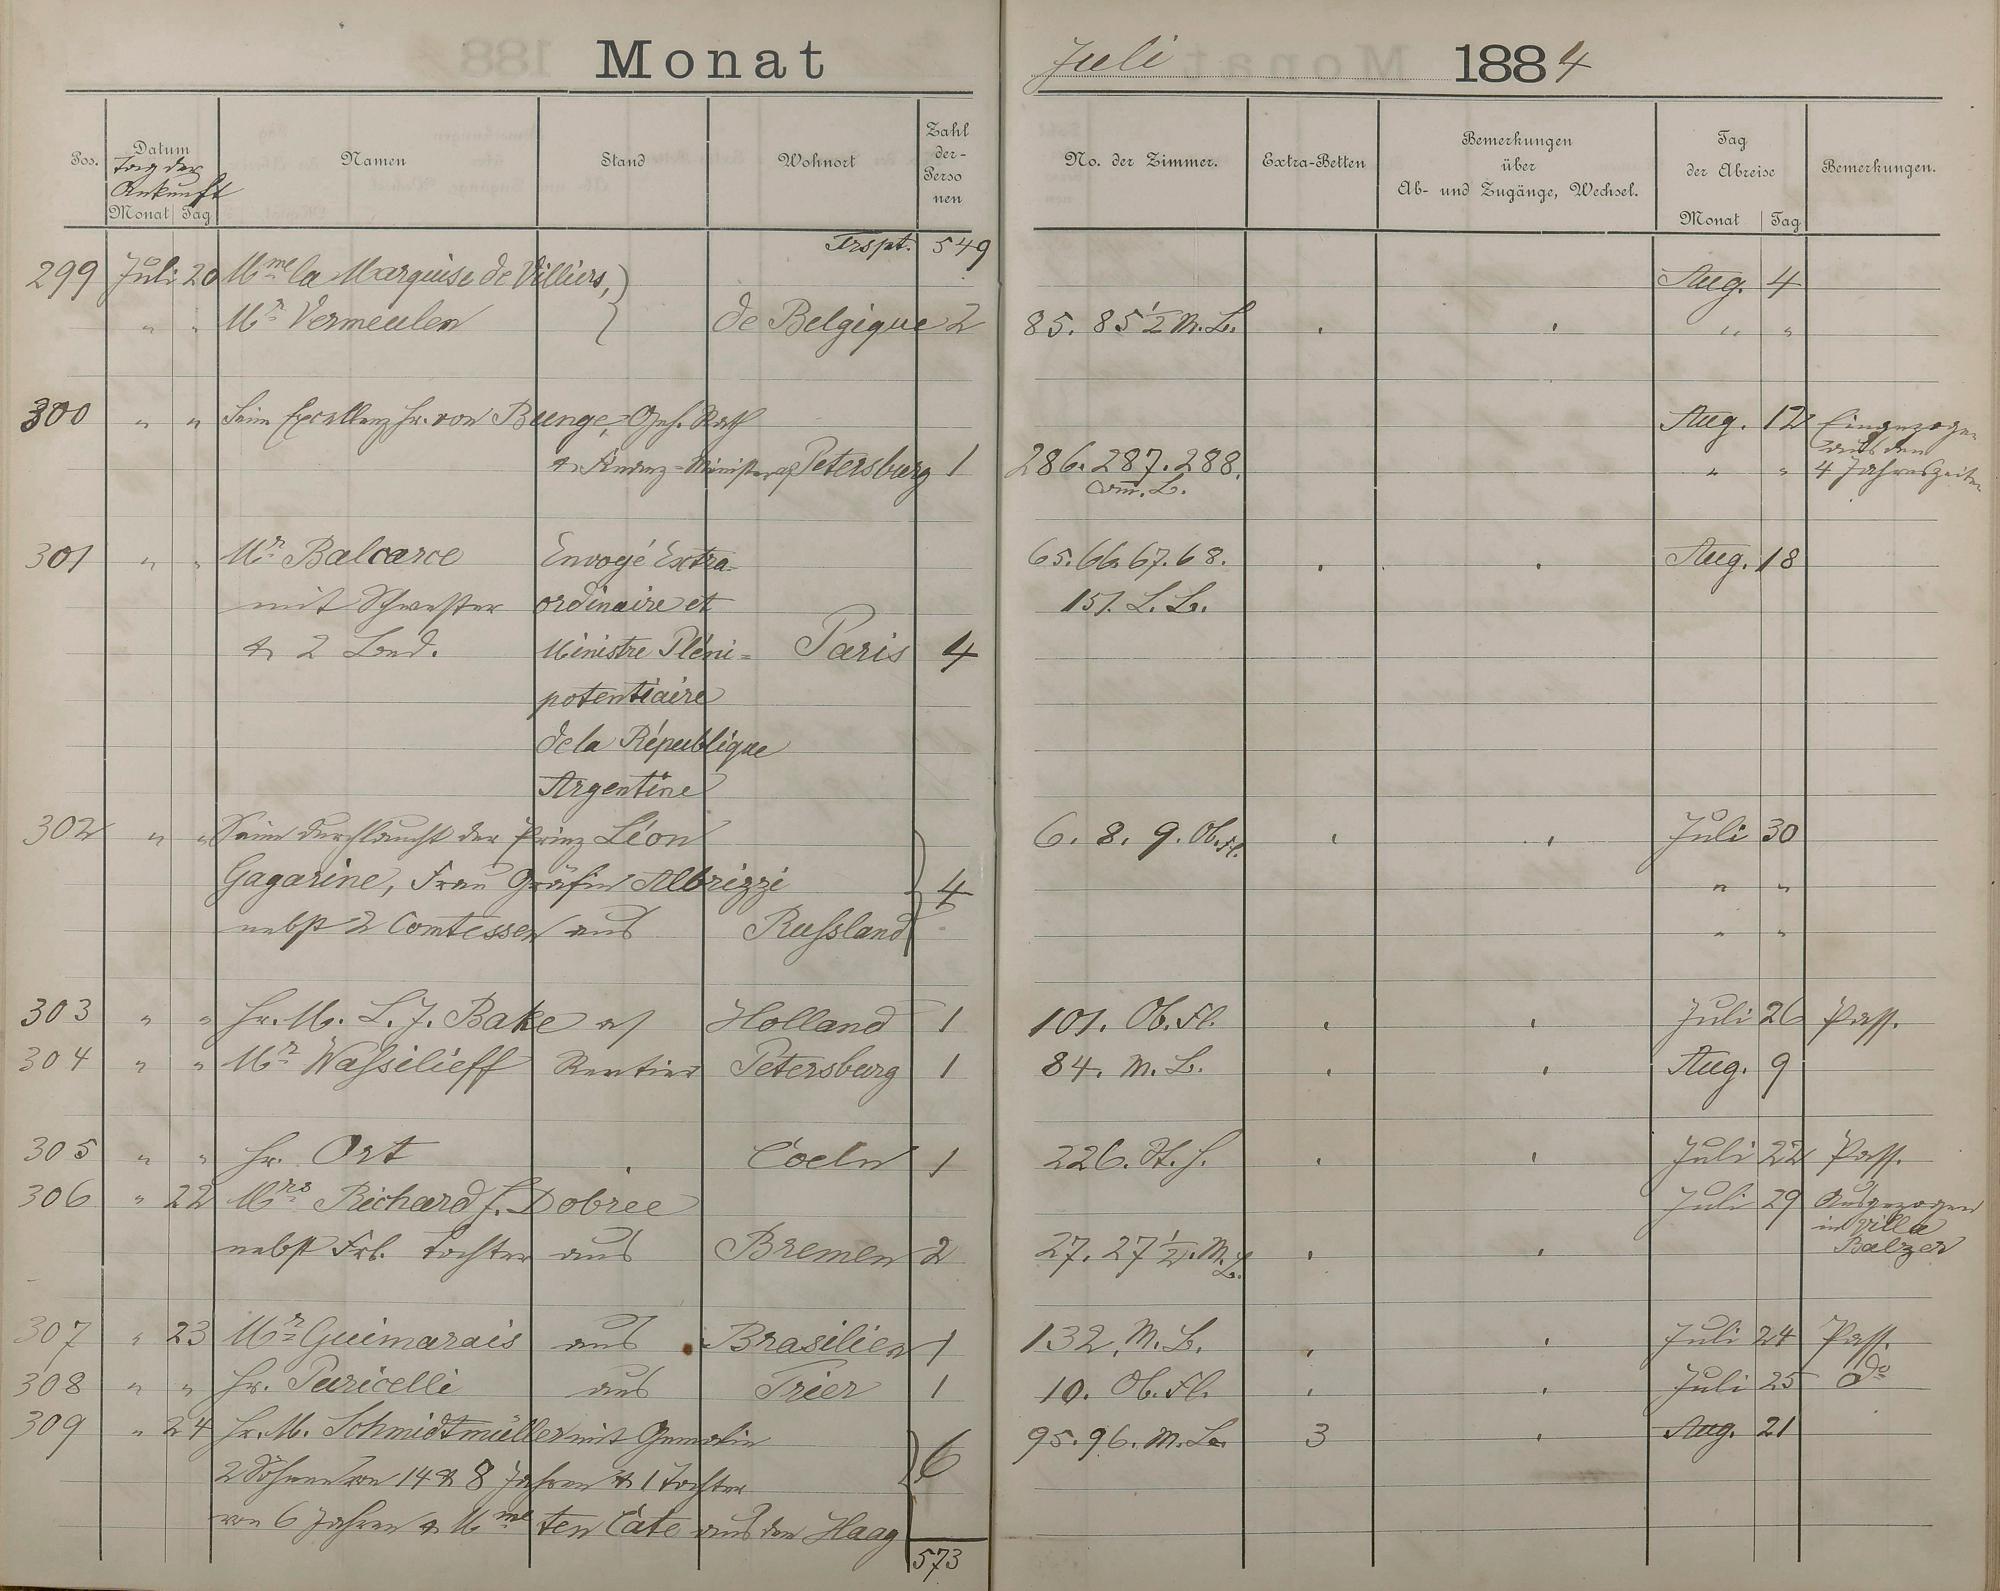 Monat Juli 1884
Pos. Datum Namen Stand Wohnort Zahl der Perso nen No. der Zimmer. Extra-Betten Bemerkungen über Ab- und Zugänge, Wechsel. Tag der Abreise Bemerkungen.
Tag der
Ankunft
Monat Tag Monat Tag
Trspt. 549
299 Juli 20 Mme la Marquise de Villiers, Aug. 4
" " Mr Vermeulen de Belgique 2 85. 85 1/2 M. L. " "
300 " " Seine Excellenz Hr. von Bunge, Geh. Rath Aug. 12 Eingezogen
aus den
& Finanz-Minister Petersburg 1 286. 287. 288. " " 4 Jahreszeiten
301 " " Mr Balcarce Envoyé Extra- 65. 66. 67. 68. Aug. 18
mit Schwester ordinaire et 151. L. L.
& 2 Bed. Ministre Pléni= Paris 4
potentiaire
de la République
Argentine
302 " " Seine Durchlaucht der Prinz Léon 6. 8. 9. Ob. Fl. Juli 30
Gagarine, Frau Gräfin Albrizzi 4 " "
nebst 2 Comtessen aus Russland " "
303 " " Hr. M. L. J. Bake a/ Holland 1 101. Ob. Fl. Juli 26 Pass.
304 " " Mr Wassilieff Rentier Petersburg 1 84. M. L. Aug. 9
305 " " Hr. Ort Coeln 1 226. Juli 22 Pass.
306 " 22 Mrs Richard f. Dobree Juli 29 Ausgezogen
in Villa
nebst Frl. Tochter aus Bremen 2 27. 27 1/2. M. L. Balzer
307 " 23 Mr Guimarais aus Brasilien 1 132. M. L. Juli 24 Pass.
308 " " Hr. Puricelli aus Trier 1 10. Ob. Fl. Juli 25 do
309 " 24 Hr. M. Schmidtmüller mit Gemalin 6 95. 96. M. L. 3 Aug. 21
2 Söhnen von 14 & 8 Jahren & 1 Tochter
von 6 Jahren & Mme ten Cate aus den Haag
573